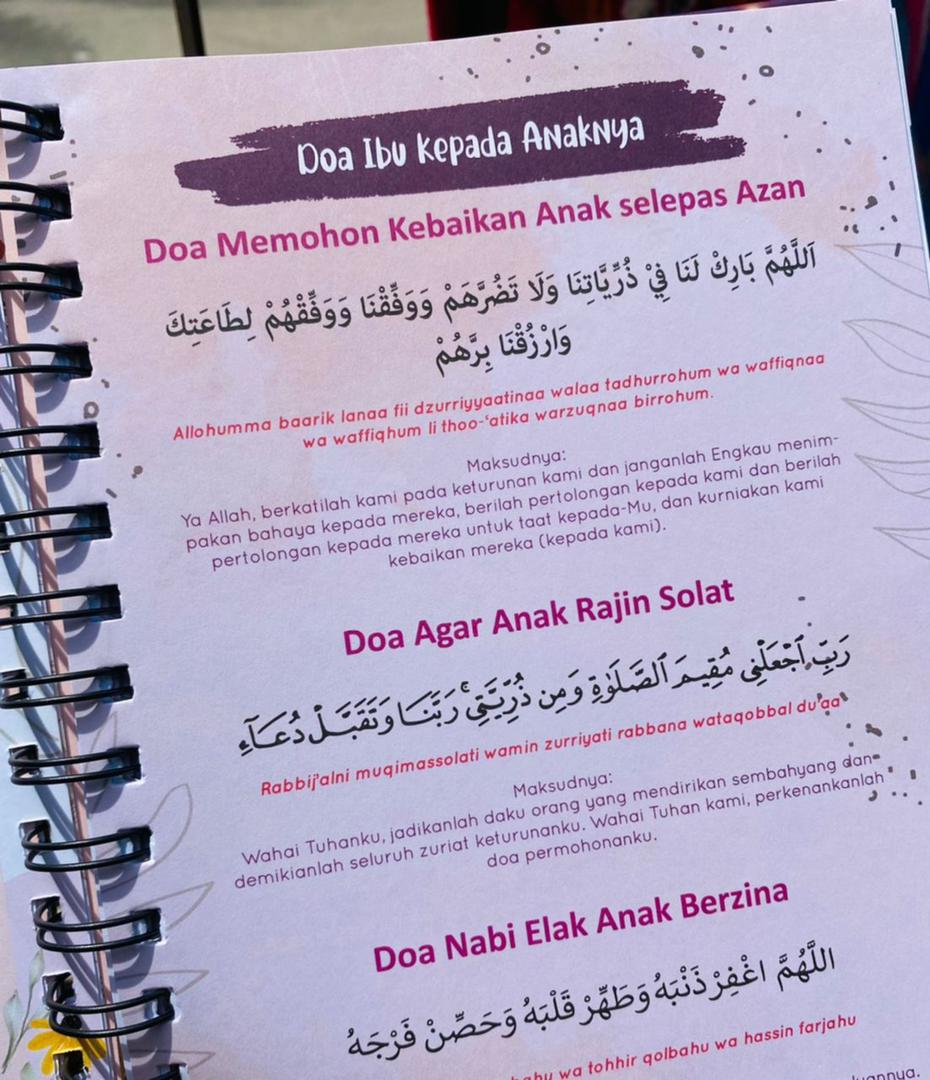 Doa Ibu kepada Anaknya
Doa Memohon Kebaikan Anak selepas Azan
اَللَّهُمَّ بَارِكْ لَنَا فِيْ ذُرِّيَّاتِنَا وَلَا تَضُرَّهَمْ وَوَفِّقْنَا وَوَفِّقْهُمْ لِطَاعَتِكَ
وَارْزُقْنَا بِرَّهُمْ
Allohumma baarik lanaa fii dzurriyyaatinaa walaa tadhurrohum wa waffiqnaa
wa waffiqhum li thoo-‘atika warzuqnaa birrohum.
Maksudnya:
Ya Allah, berkatilah kami pada keturunan kami dan janganlah Engkau menim-
pakan bahaya kepada mereka, berilah pertolongan kepada kami dan berilah
pertolongan kepada mereka untuk taat kepada-Mu, dan kurniakan kami
kebaikan mereka (kepada kami).
Doa Agar Anak Rajin Solat
رَبِّ ٱجْعَلْنِى مُقِيمَ ٱلصَّلَوٰةِ وَمِن ذُرِّيَّتِى ۚ رَبَّنَا وَتَقَبَّلْ دُعَآءِ
Rabbij’alni muqimassolati wamin zurriyati rabbana wataqobbal du’aa’
Maksudnya:
Wahai Tuhanku, jadikanlah daku orang yang mendirikan sembahyang dan
demikianlah seluruh zuriat keturunanku. Wahai Tuhan kami, perkenankanlah
doa permohonanku.
Doa Nabi Elak Anak Berzina
اللَّهُمَّ اغْفِرْ ذَنْبَهُ وَطَهِّرْ قَلْبَهُ وَحَصِّنْ فَرْجَهُ
wa tohhir qolbahu wa hassin farjahu